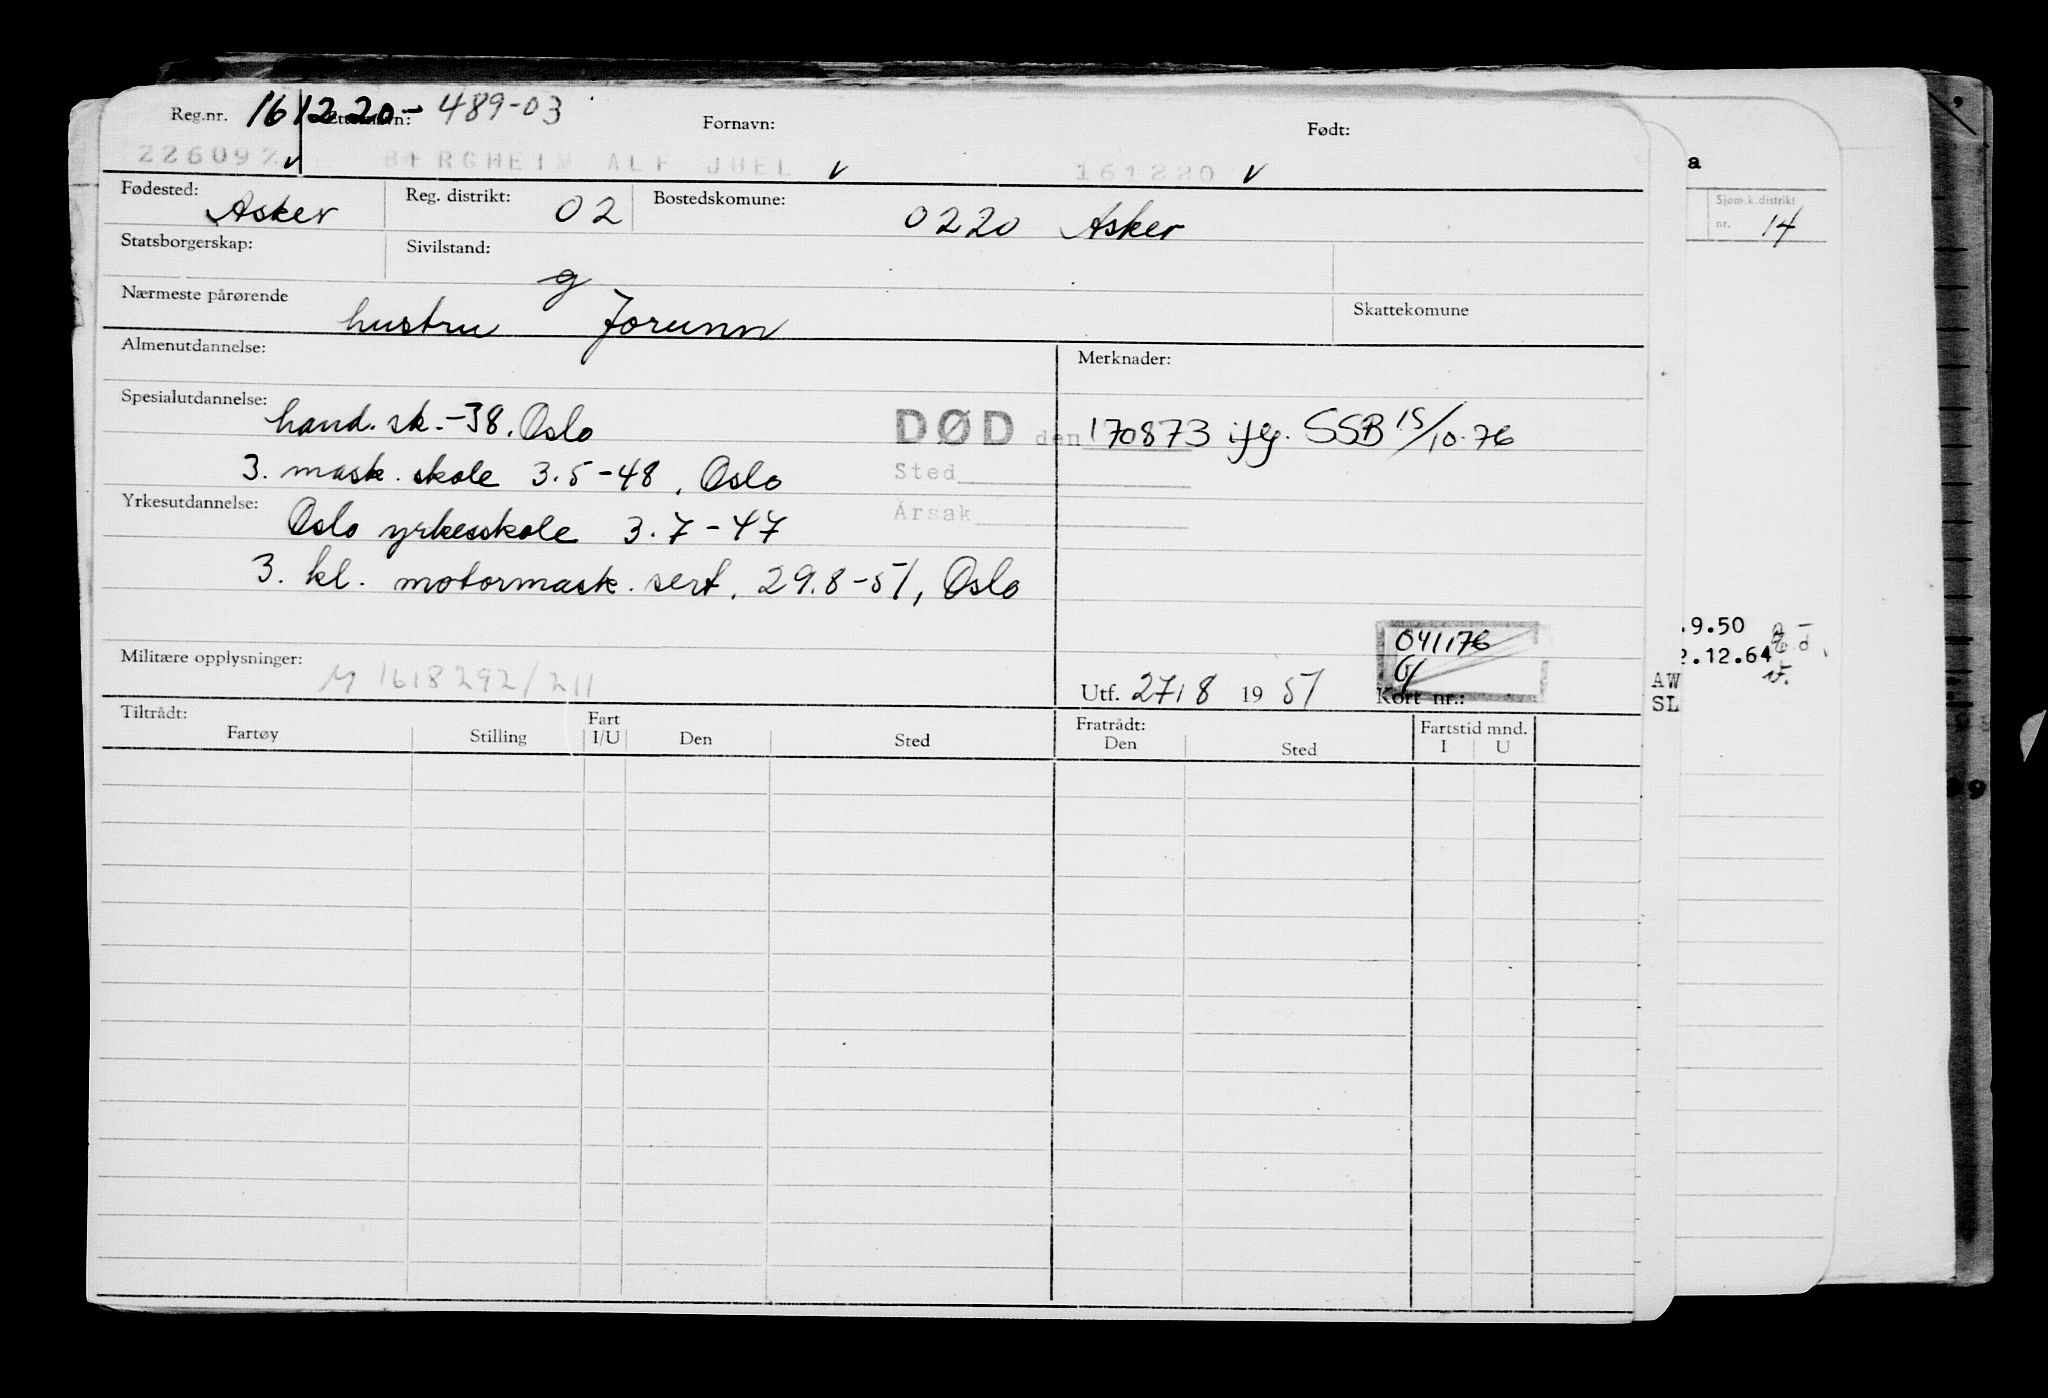 Reg.nr. 161220- 489-03 Fornavn: Født:
226092 v BERGHEIM ALF JUEL v 161220 v
Fødested: Asker Reg. distrikt: 02 Bostedskomune: 0220 Asker
Statsborgerskap: Sivilstand: g
Nærmeste pårørende hustru Jorunn Skattekomune
Almenutdannelse: Merknader:
Spesialutdannelse: hand. sk. -38. Oslo DØD den 170873 ifg. SSB 15/10-76
3. mask. skole 3.5-48, Oslo Sted
Yrkesutdannelse: Oslo yrkesskole 3.7-47 Årsak
3. kl. motormask. sert. 29.8-51, Oslo
041176
Militære opplysninger: M 1618292/211 Utf. 27/8 1951 Kort nr.:
Tiltrådt: Fratrådt:
Fartøy Stilling Fart I/U Den Sted Den Sted Fartstid mnd. I U
a
Sjøm.k.distrikt
nr. 14
.9.50
2.12.64
AW
SL
9